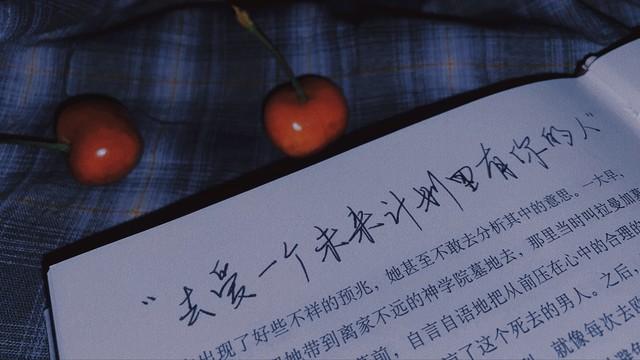 “去爱一个未来计划里有你的人”
出现了好些不祥的预兆，她甚至不敢去分析其中的意思。一大早，
她带到离家不远的神学院墓地去，那里当时叫拉曼加
前，自言自语地把从前压在心中的合理的
了这个死去的男人。之后，
就像每次去